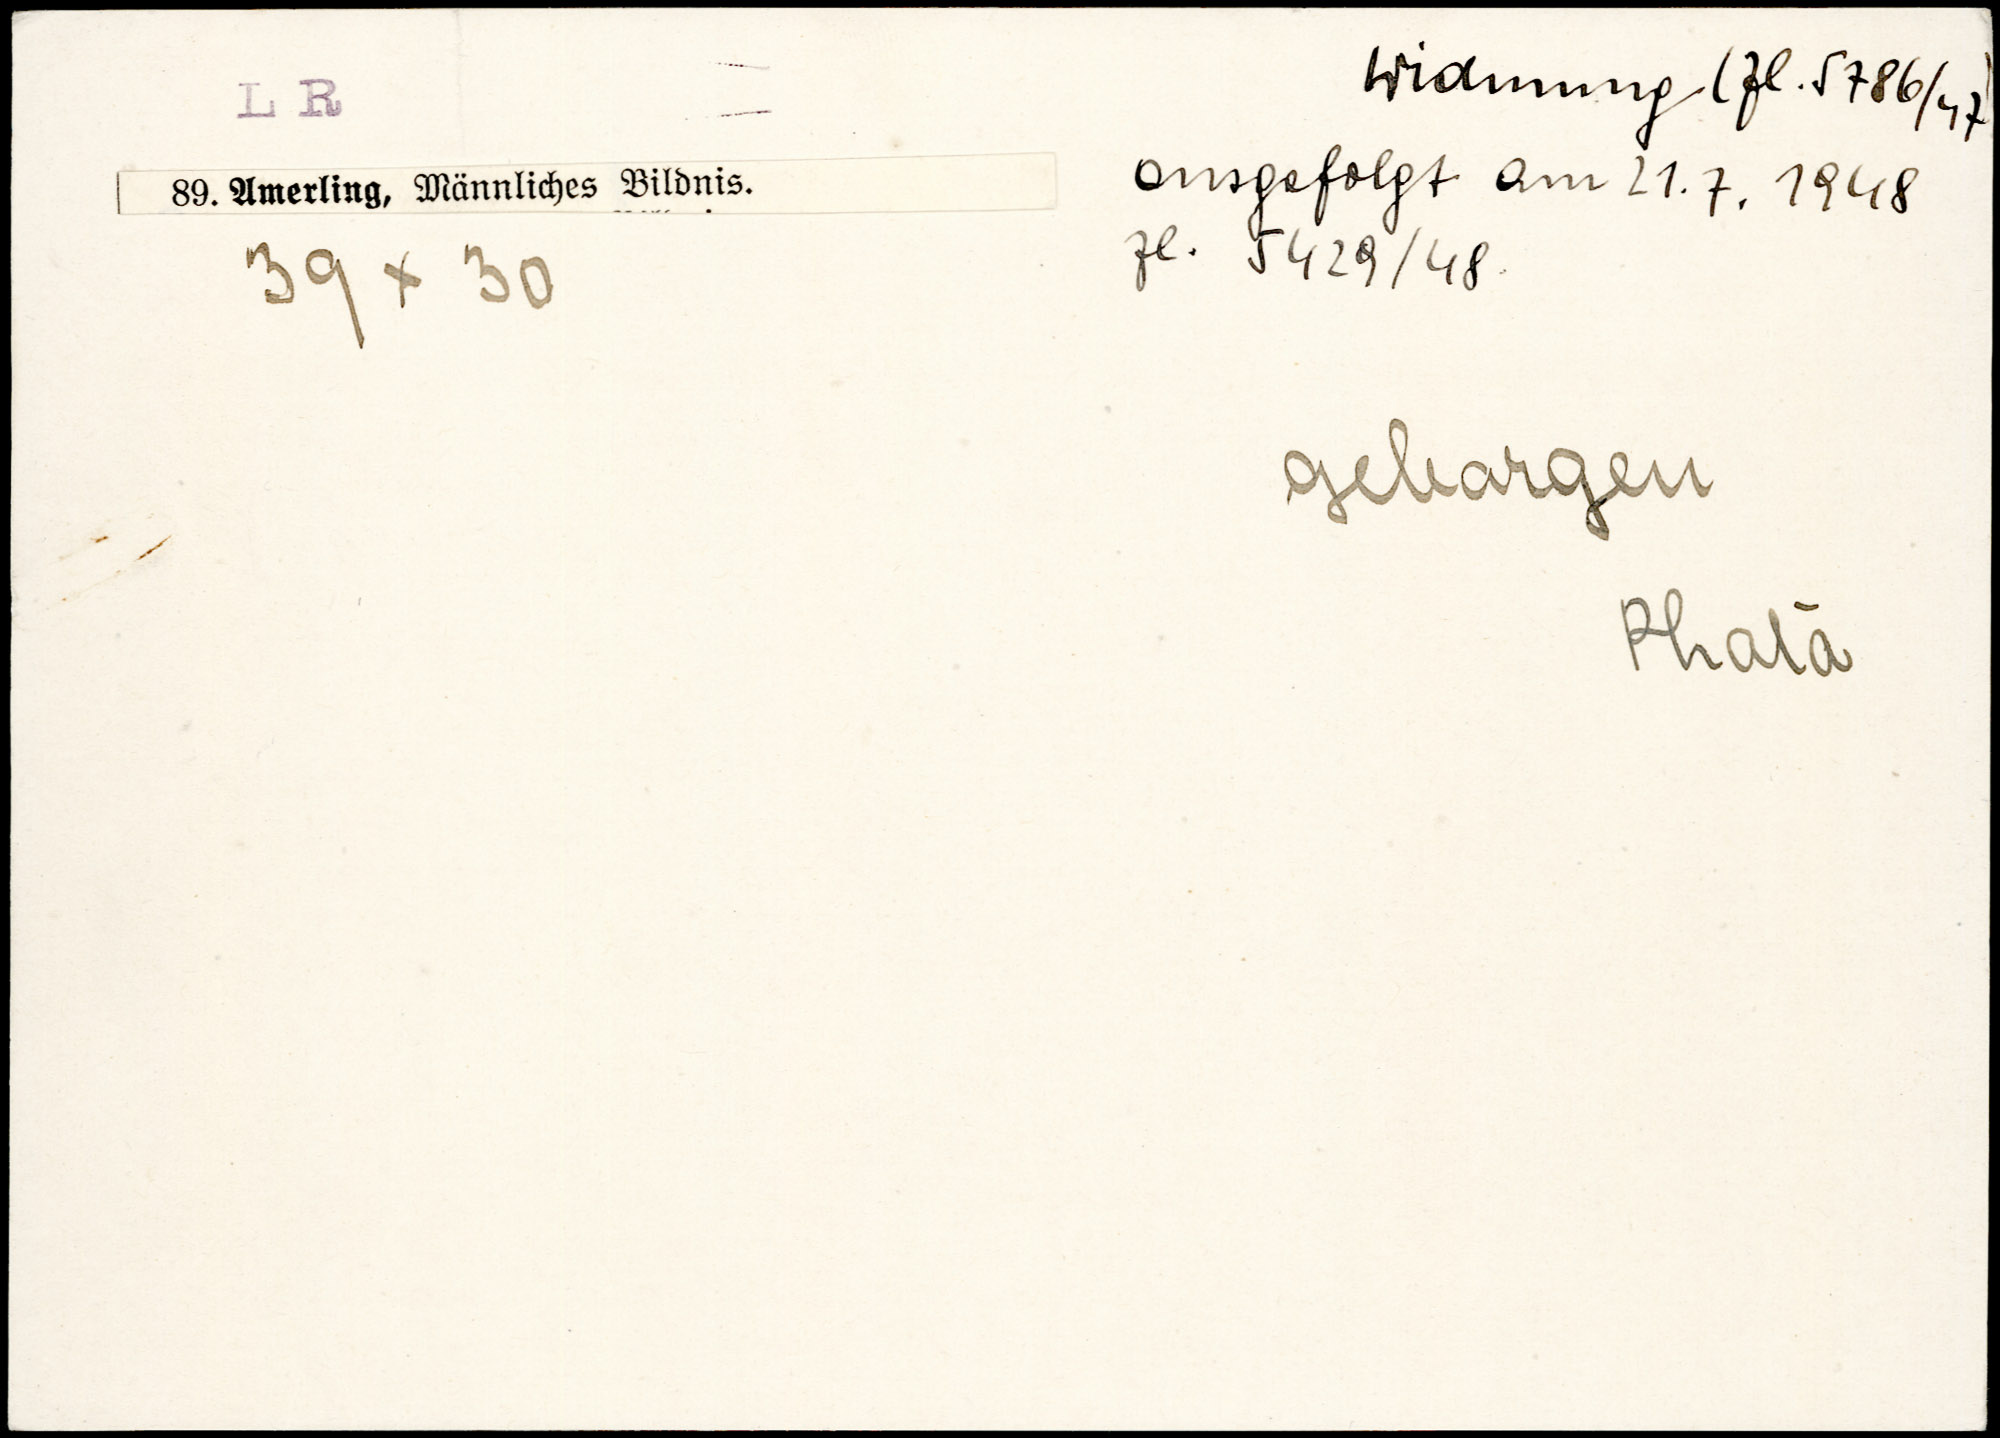 L R
89. Amerling, Männliches Bildnis.
39 x 30
Widmung (Zl. 5786/47)
ausgefolgt am 21.7.1948
Zl. 5429/48.
geborgen